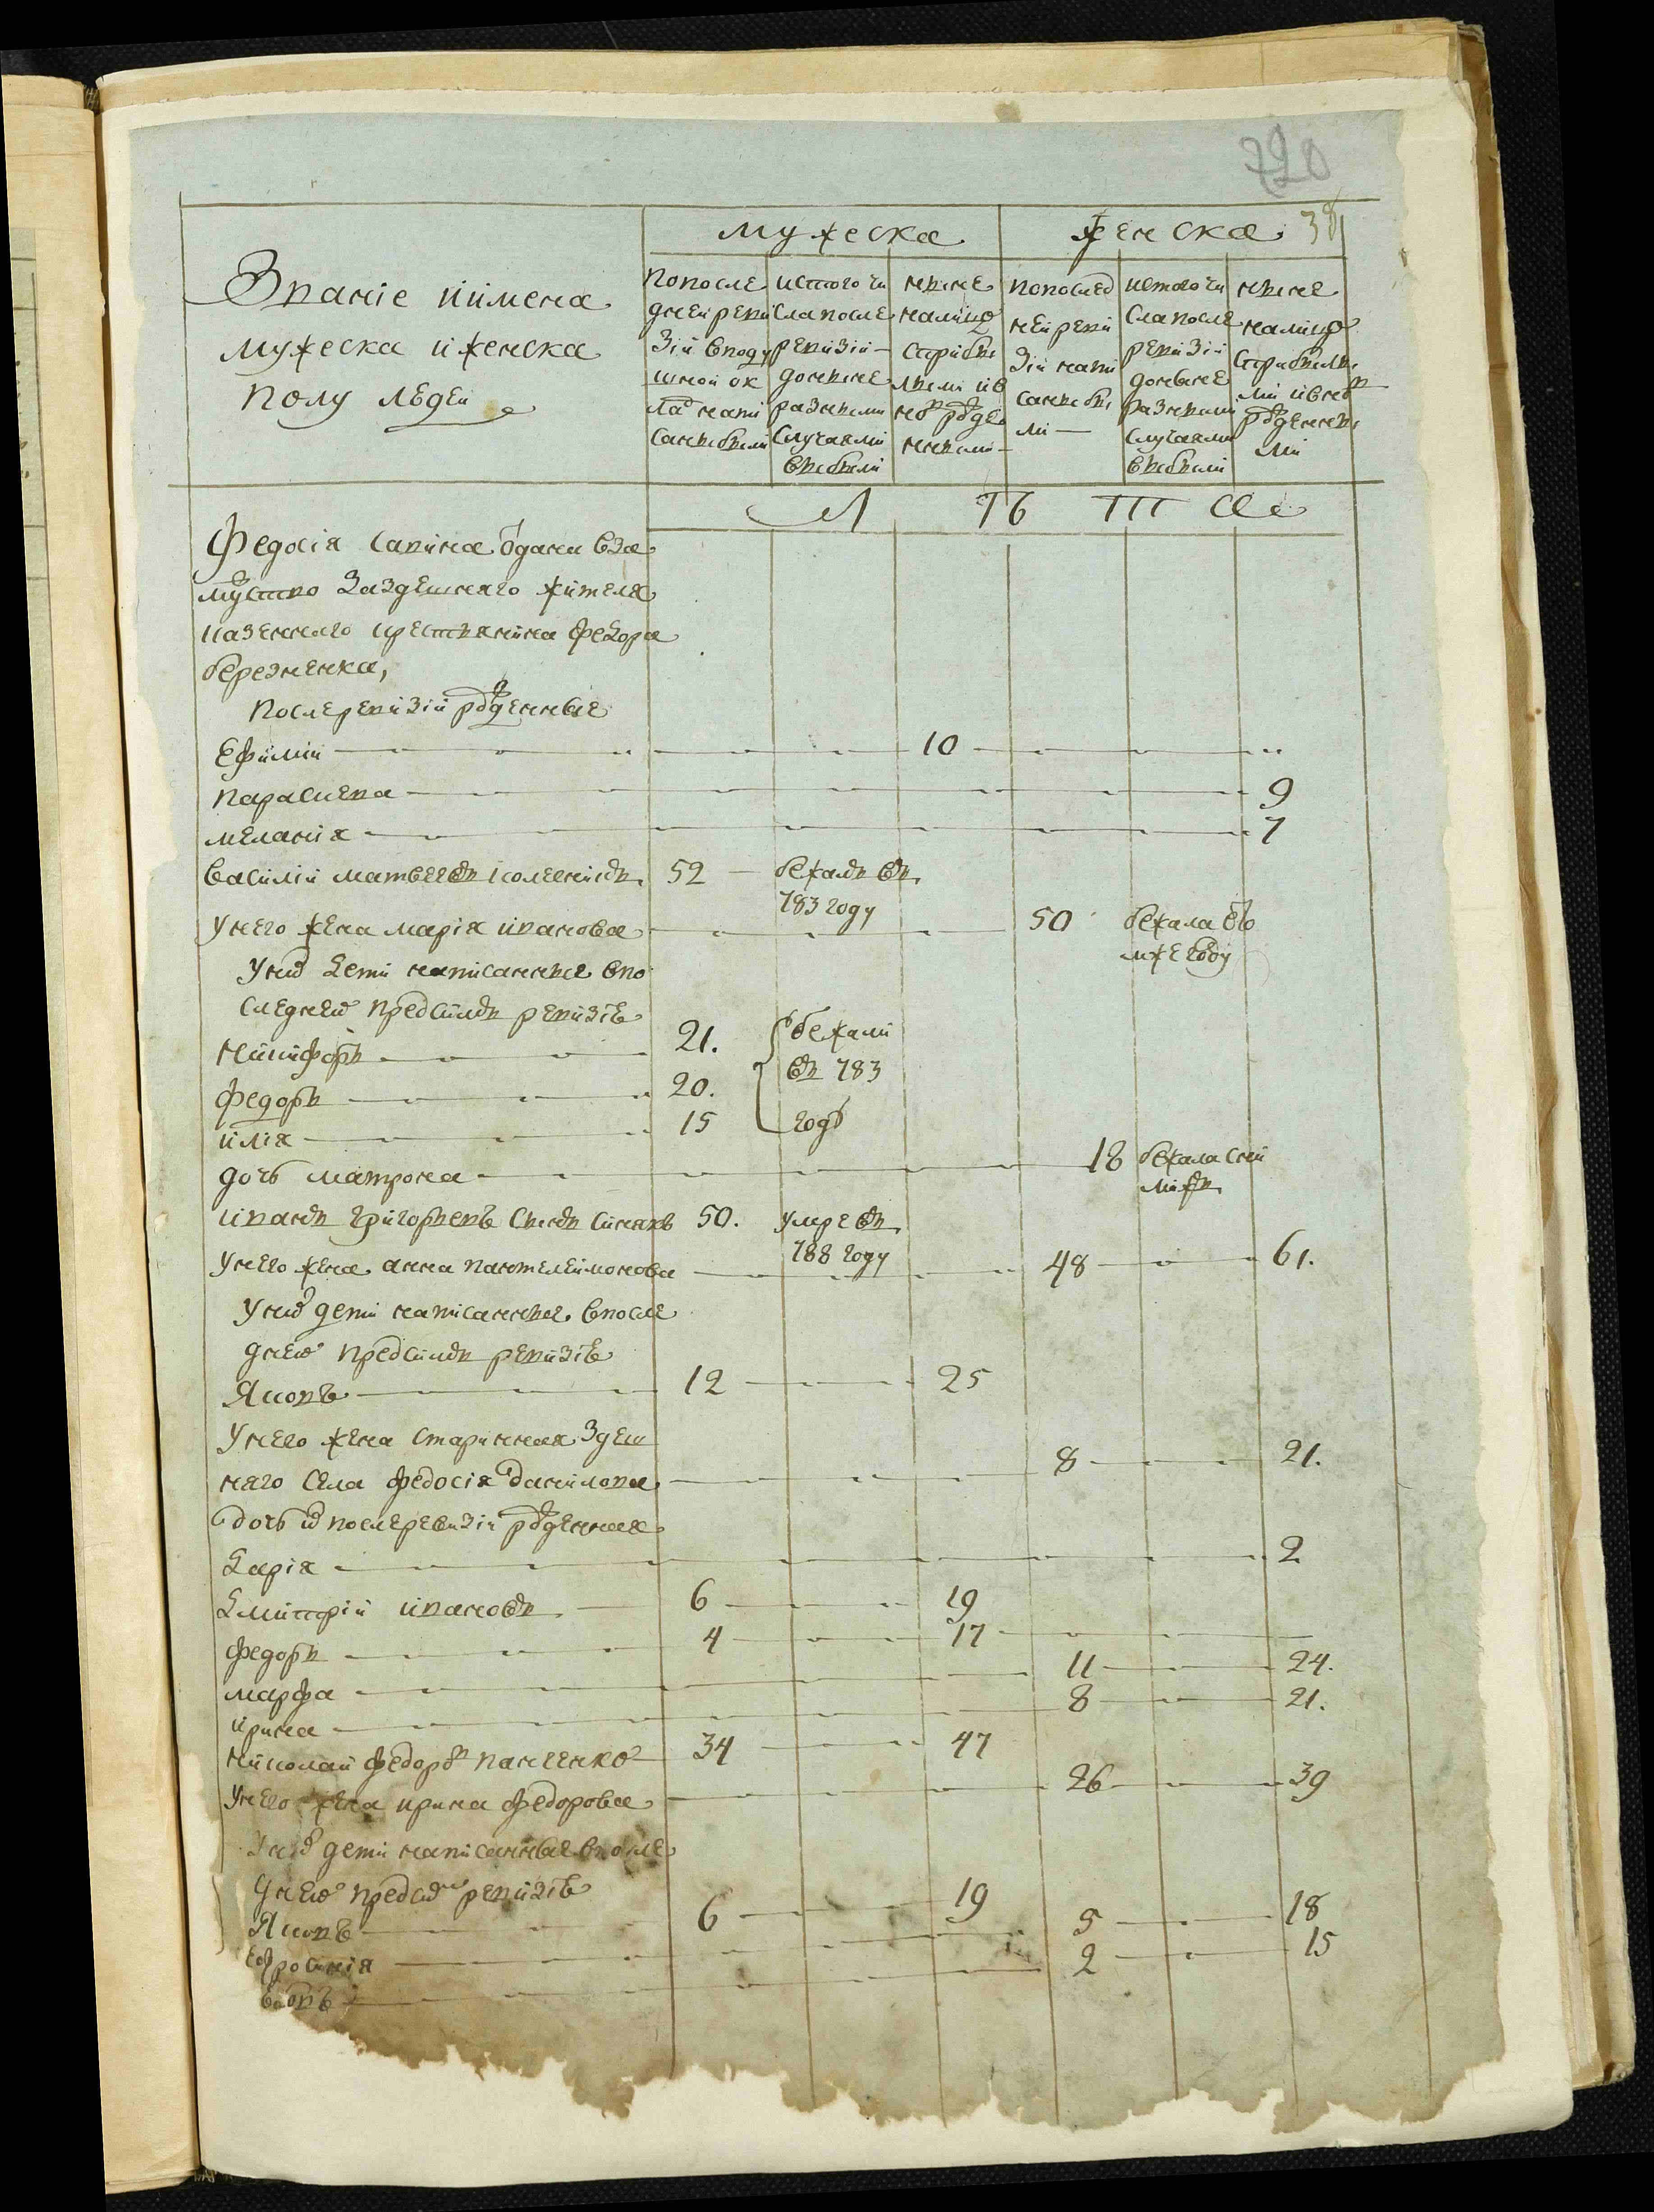 720
38
мужеска женска
Званіе иимена
мужеска иженска
полу людей
попосле
дней реви
зіи вподу
шной ок
ладъ напи
санъ были
истого чи
сла после
ревизіи
до ныне
разными
случаями
выбыли
ныне
налицо
сприбы
лыми ив
новь рожде
нными
попослед
ней реви
зіи напи
саны бы
ли
истого чи
сла после
ревизіи
до ныне
разными
случаями
выбыли
ныне
налицо
сприбылы
ми ивновь
рожденны
ми
Л Ѣ Т А
Федосія Савина отдана вза
мужство заздешняго жителя
казенного крестьянина федора
березненка,
После ревизіи рожденные
Ефимій 10
Параскева 9
меланія 7
Василій матвеевъ 52 бежалъ въ
783 году
У него жена марія иванова 50 бежала въто
мже году
У них дети написанные впо
следнею пред симъ ревизіе
Никифоръ 21. бежали
федоръ 20. въ 783
илія 15 годе
дочь матрона 18 бежала сни
миже
иванъ григорьевъ сынъ синякъ 50. умре въ
788 году
У него жена анна пантелеймонова 48 61.
У них дети написанные впосле
днею пред симъ ревизіе
Яковъ 12 25
У него жена старинная здеш
няго села федосія данилова 8 21.
дочь их после ревизіи рожденная
дарія 2
дмитрій ивановъ 6 19
федоръ 4 17
марфа 11 24.
ирина 8 21.
николай федоровъ панченко 34 47
У него жена ирина федорова 26 39
У них дети написанные впосле
днею пред сим ревизіе
Яковъ 6 19
Ефросинія 5 18
2 15